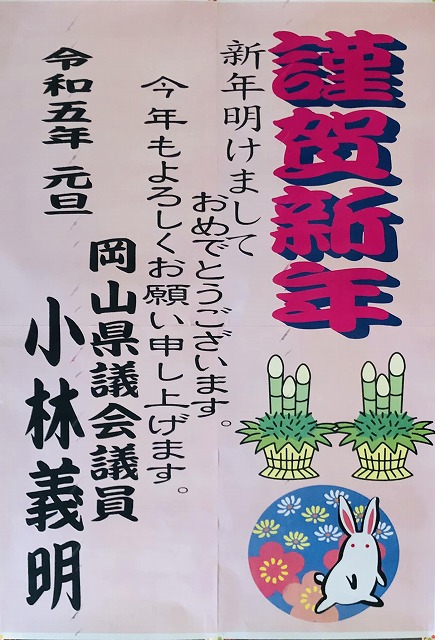 謹賀新年
新年明けまして
おめでとうございます。
今年もよろしくお願い申し上げます。
令和五年 元旦
岡山県議会議員
小林義明